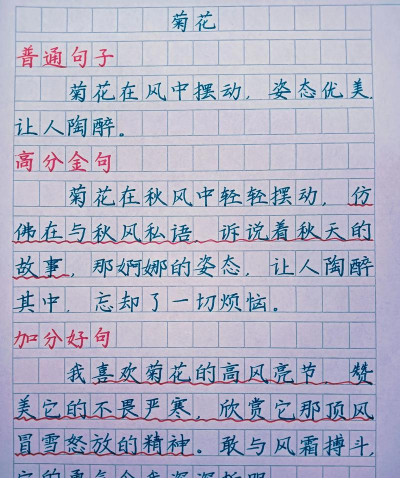 菊花
普通句子
菊花在风中摆动，姿态优美，
让人陶醉。
高分金句
菊花在秋风中轻轻摆动，仿
佛在与秋风私语、诉说着秋天的
故事，那婀娜的姿态，让人陶醉
其中，忘却了一切烦恼。
加分好句
我喜欢菊花的高风亮节，赞
美它的不畏严寒，欣赏它那顶风
冒雪怒放的精神。敢与风霜搏斗，